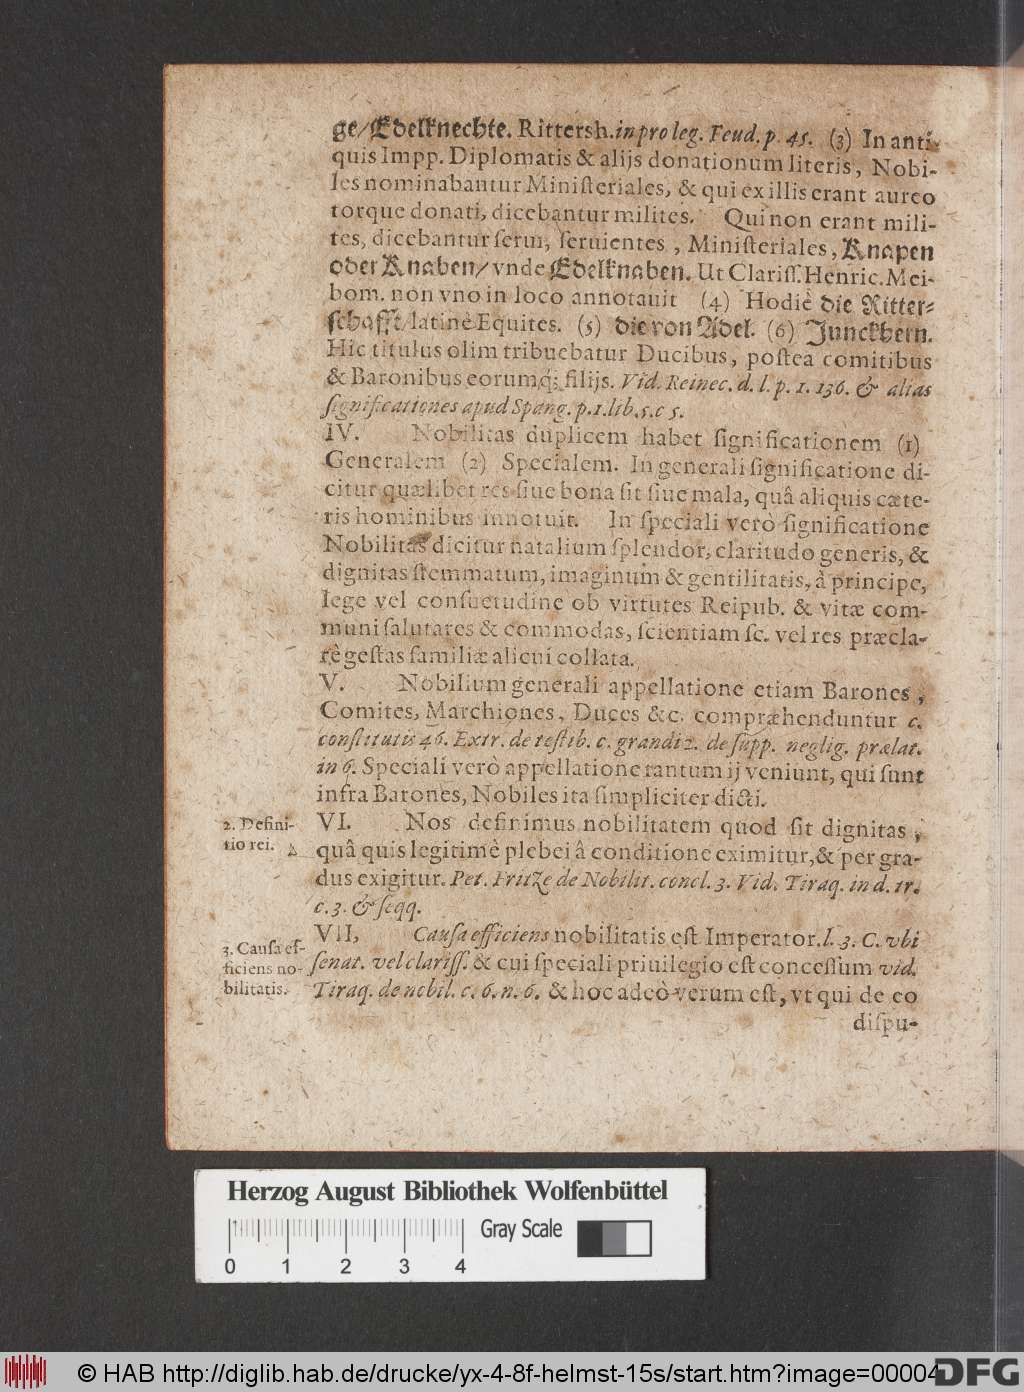 ge/Edelknechte. Rittersh. in pro leg. Feud. p. 45. (3) In anti-
quis Impp. Diplomatis & alijs donationum literis, Nobi-
les nominabantur Ministeriales, & qui ex illis erant aureo
torque donati, dicebantur milites. Qui non erant mili-
tes, dicebantur serui, seruientes, Ministeriales, Knapen
oder Knaben/vnde Edelknaben. Ut Clariss. Henric. Mei-
bom. non vno in loco annotauit (4) Hodiè die Ritter-
schafft/latinè Equites. (5) die von Adel. (6) Junckhern.
Hic titulus olim tribuebatur Ducibus, postea comitibus
& Baronibus eorumq; filijs. Vid. Reinec. d. l. p. 1. 136. & alias
significationes apud Spang. p. 1. lib. 5. c 5.
IV. Nobilitas duplicem habet significationem (1)
Generalem (2) Specialem. In generali significatione di-
citur quælibet res siue bona sit siue mala, quâ aliquis cæte-
ris hominibus innotuit. In speciali verò significatione
Nobilitas dicitur natalium splendor, claritudo generis, &
dignitas stemmatum, imaginum & gentilitatis, à principe,
lege vel consuetudine ob virtutes Reipub. & vitæ com-
muni salutares & commodas, scientiam sc. vel res præcla-
rè gestas familiæ alicui collata.
V. Nobilium generali appellatione etiam Barones,
Comites, Marchiones, Duces &c. compræhenduntur c.
constitutis 46. Extr. de testib. c. grandi 2. de supp. neglig. prælat.
in 6. Speciali verò appellatione tantum ij veniunt, qui sunt
infra Barones, Nobiles ita simpliciter dicti.
2. Defini-
tio rei.
VI. Nos definimus nobilitatem quod sit dignitas,
quâ quis legitimè plebeiâ conditione eximitur, & per gra-
dus exigitur. Pet. Fritze de Nobilit. concl. 3. Vid. Tiraq. in d. tr.
c. 3. & seqq.
3. Causa ef-
ficiens no-
bilitatis.
VII, Causa efficiens nobilitatis est Imperator. l. 3. C. vbi
senat. vel clariss. & cui speciali priuilegio est concessum vid.
Tiraq. de nobil. c. 6. n. 6. & hoc adeò verum est, vt qui de eo
dispu-
Herzog August Bibliothek Wolfenbüttel
Gray Scale
0 1 2 3 4
© HAB http://diglib.hab.de/drucke/yx-4-8f-helmst-15s/start.htm?image=00004
DFG